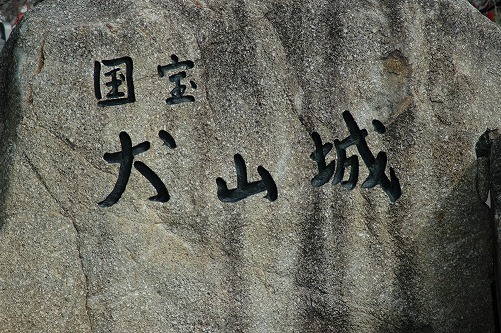 国宝
犬山城